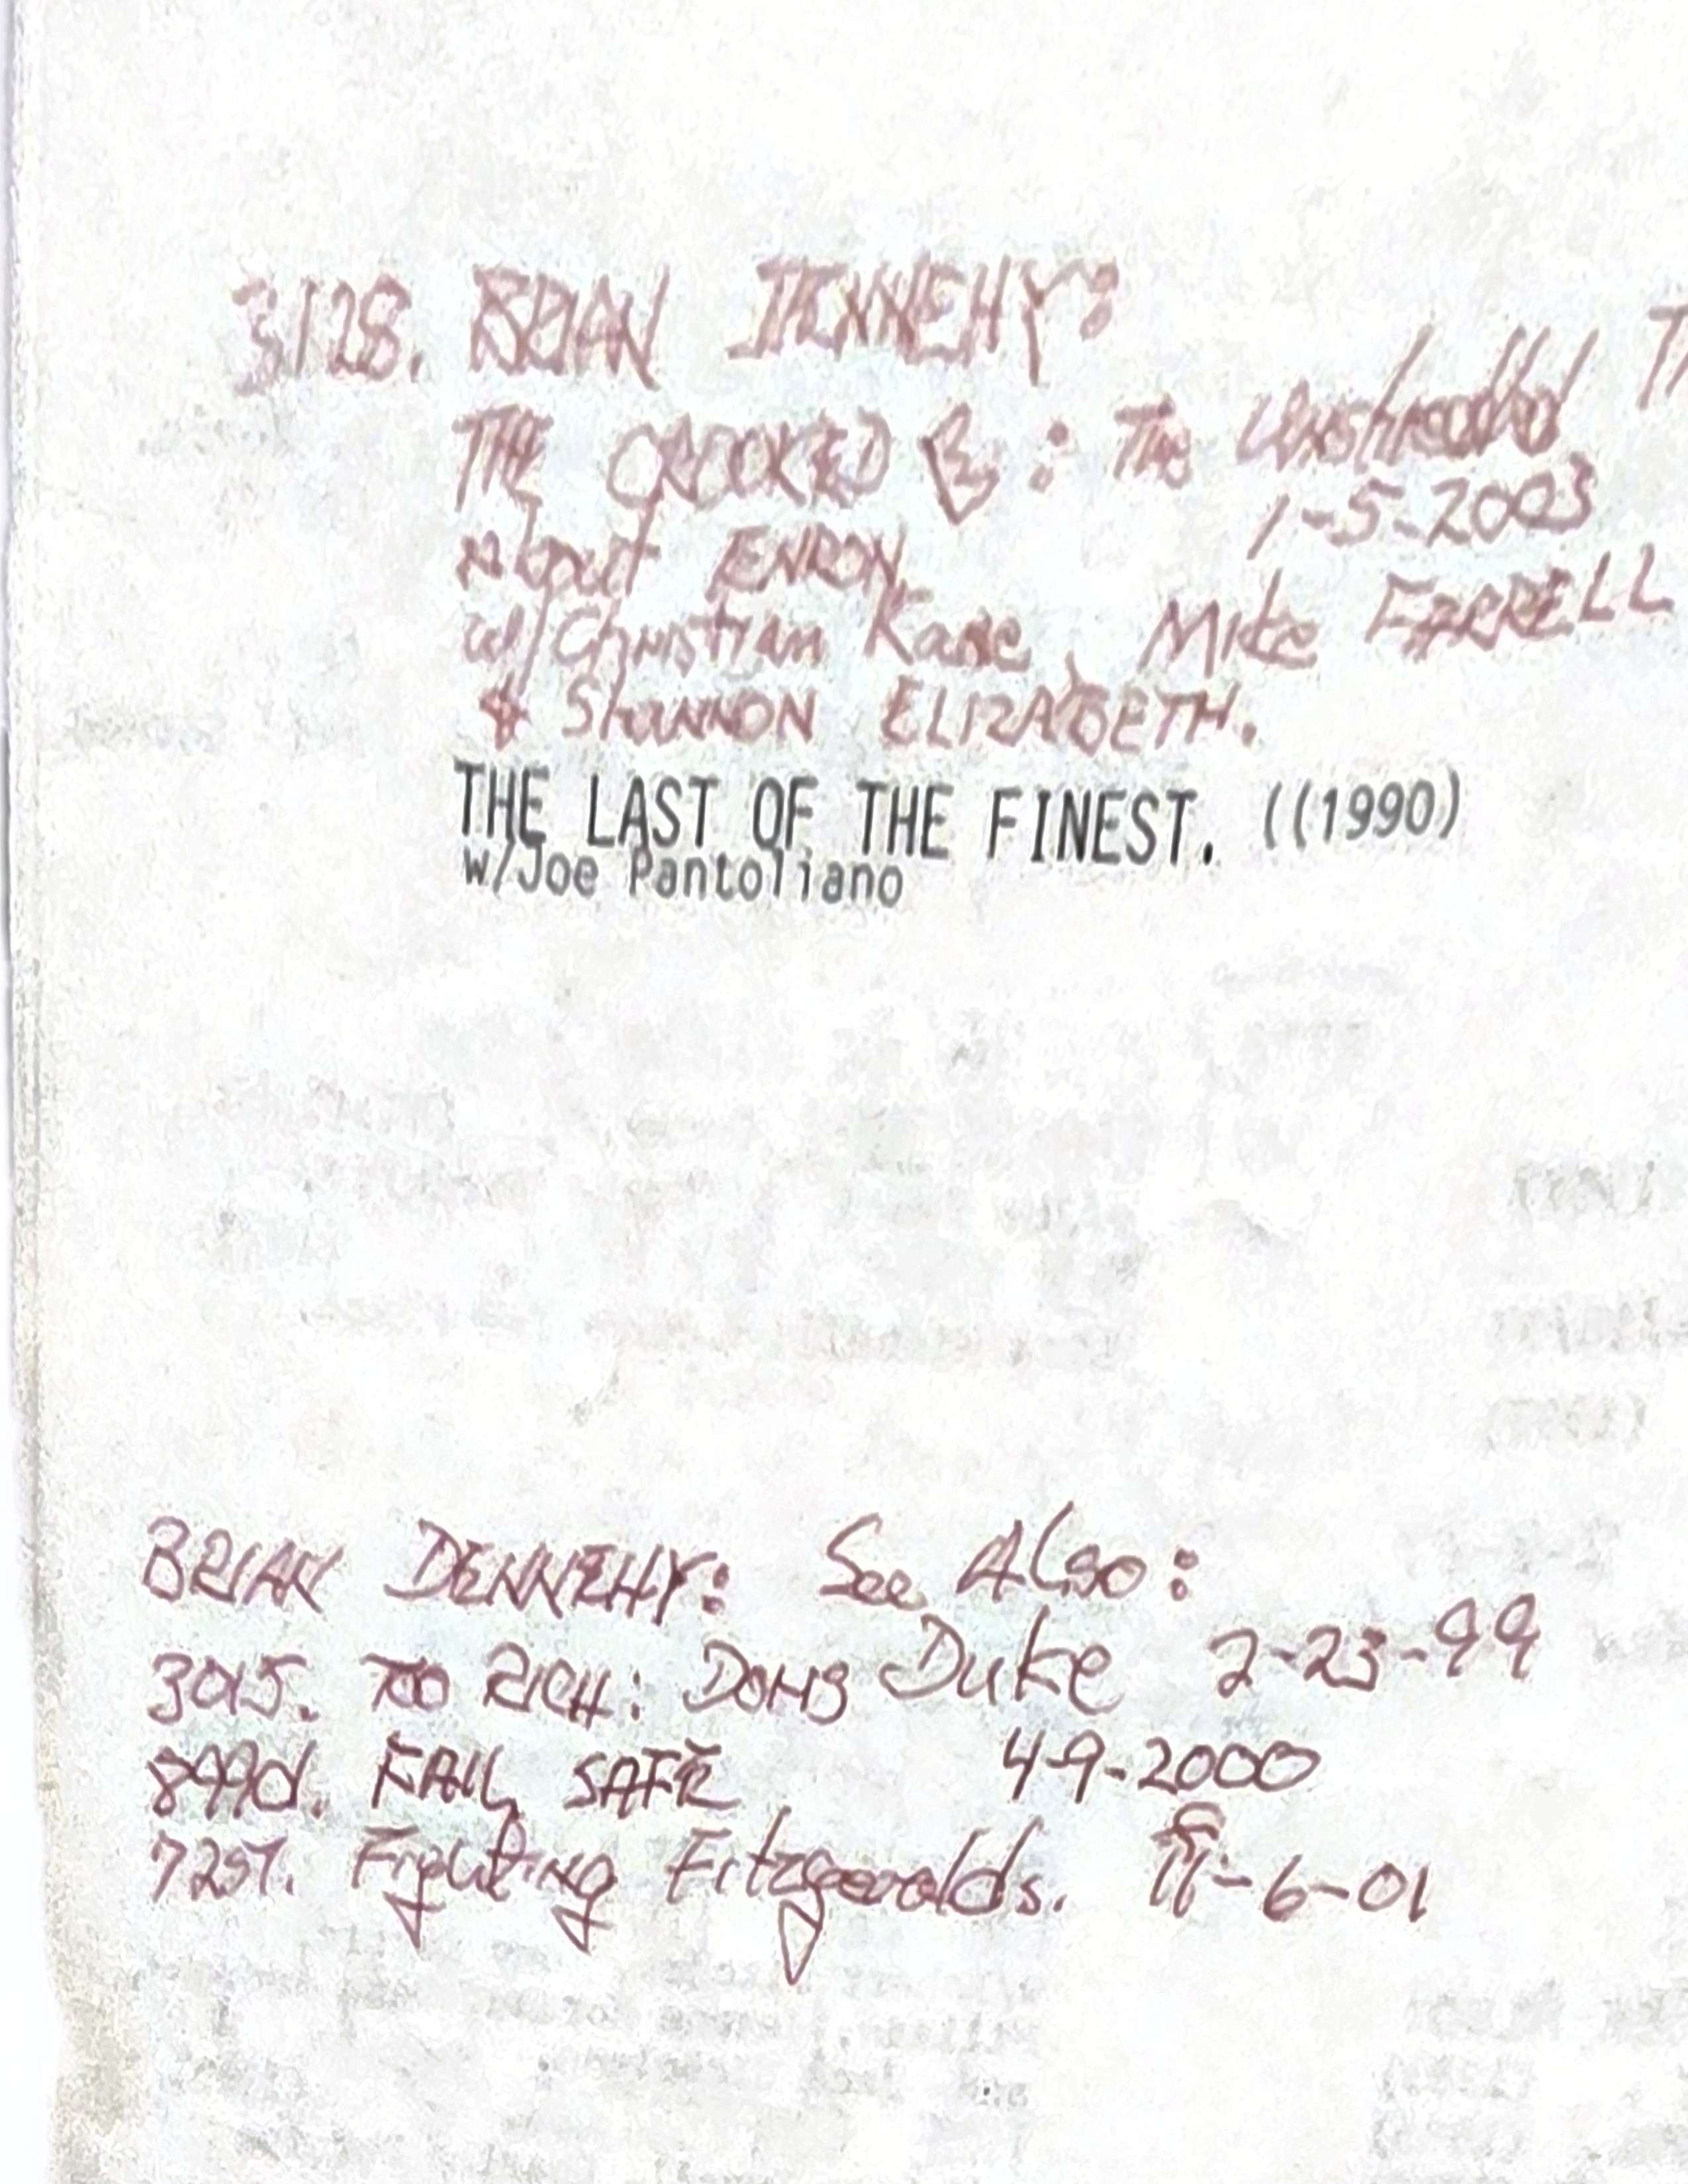 3128. BRIAN DENNEHY:
THE CROOKED E: The Unshredded T
About ENRON 1-5-2003
w/Christian Kane, Mike FARRELL
& SHANNON ELIZABETH.
THE LAST OF THE FINEST. ((1990)
w/Joe Pantoliano
BRIAN DENNEHY: See Also:
3015. TOO RICH: DORIS Duke 2-23-99
899d. FAIL SAFE 4-9-2000
Fighting Fitzgeralds. -6-01